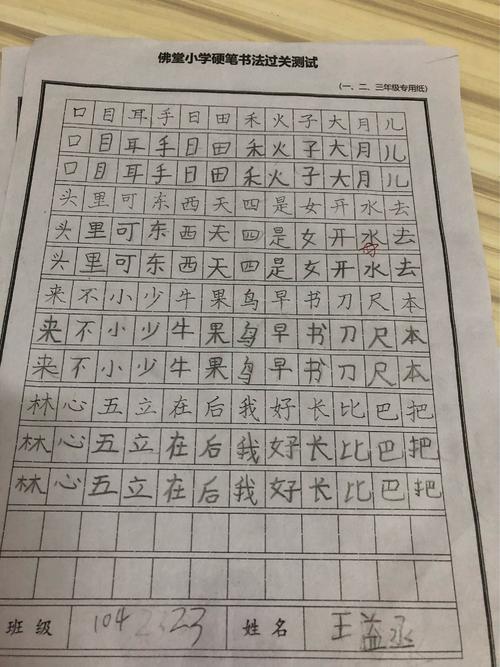 佛堂小学硬笔书法过关测试
（一、二、三年级专用纸）
口目耳手日田禾火子大月儿
口目耳手日田禾火子大月儿
口目耳手日田禾火子大月儿
头里可东西天四是女开水去
头里可东西天四是女开水去
头里可东西天四是女开水去
来不小少牛果鸟早书刀尺本
来不小少牛果鸟早书刀尺本
来不小少牛果鸟早书刀尺本
林心五立在后我好长比巴把
林心五立在后我好长比巴把
林心五立在后我好长比巴把
班级 104 23 姓名 王益丞